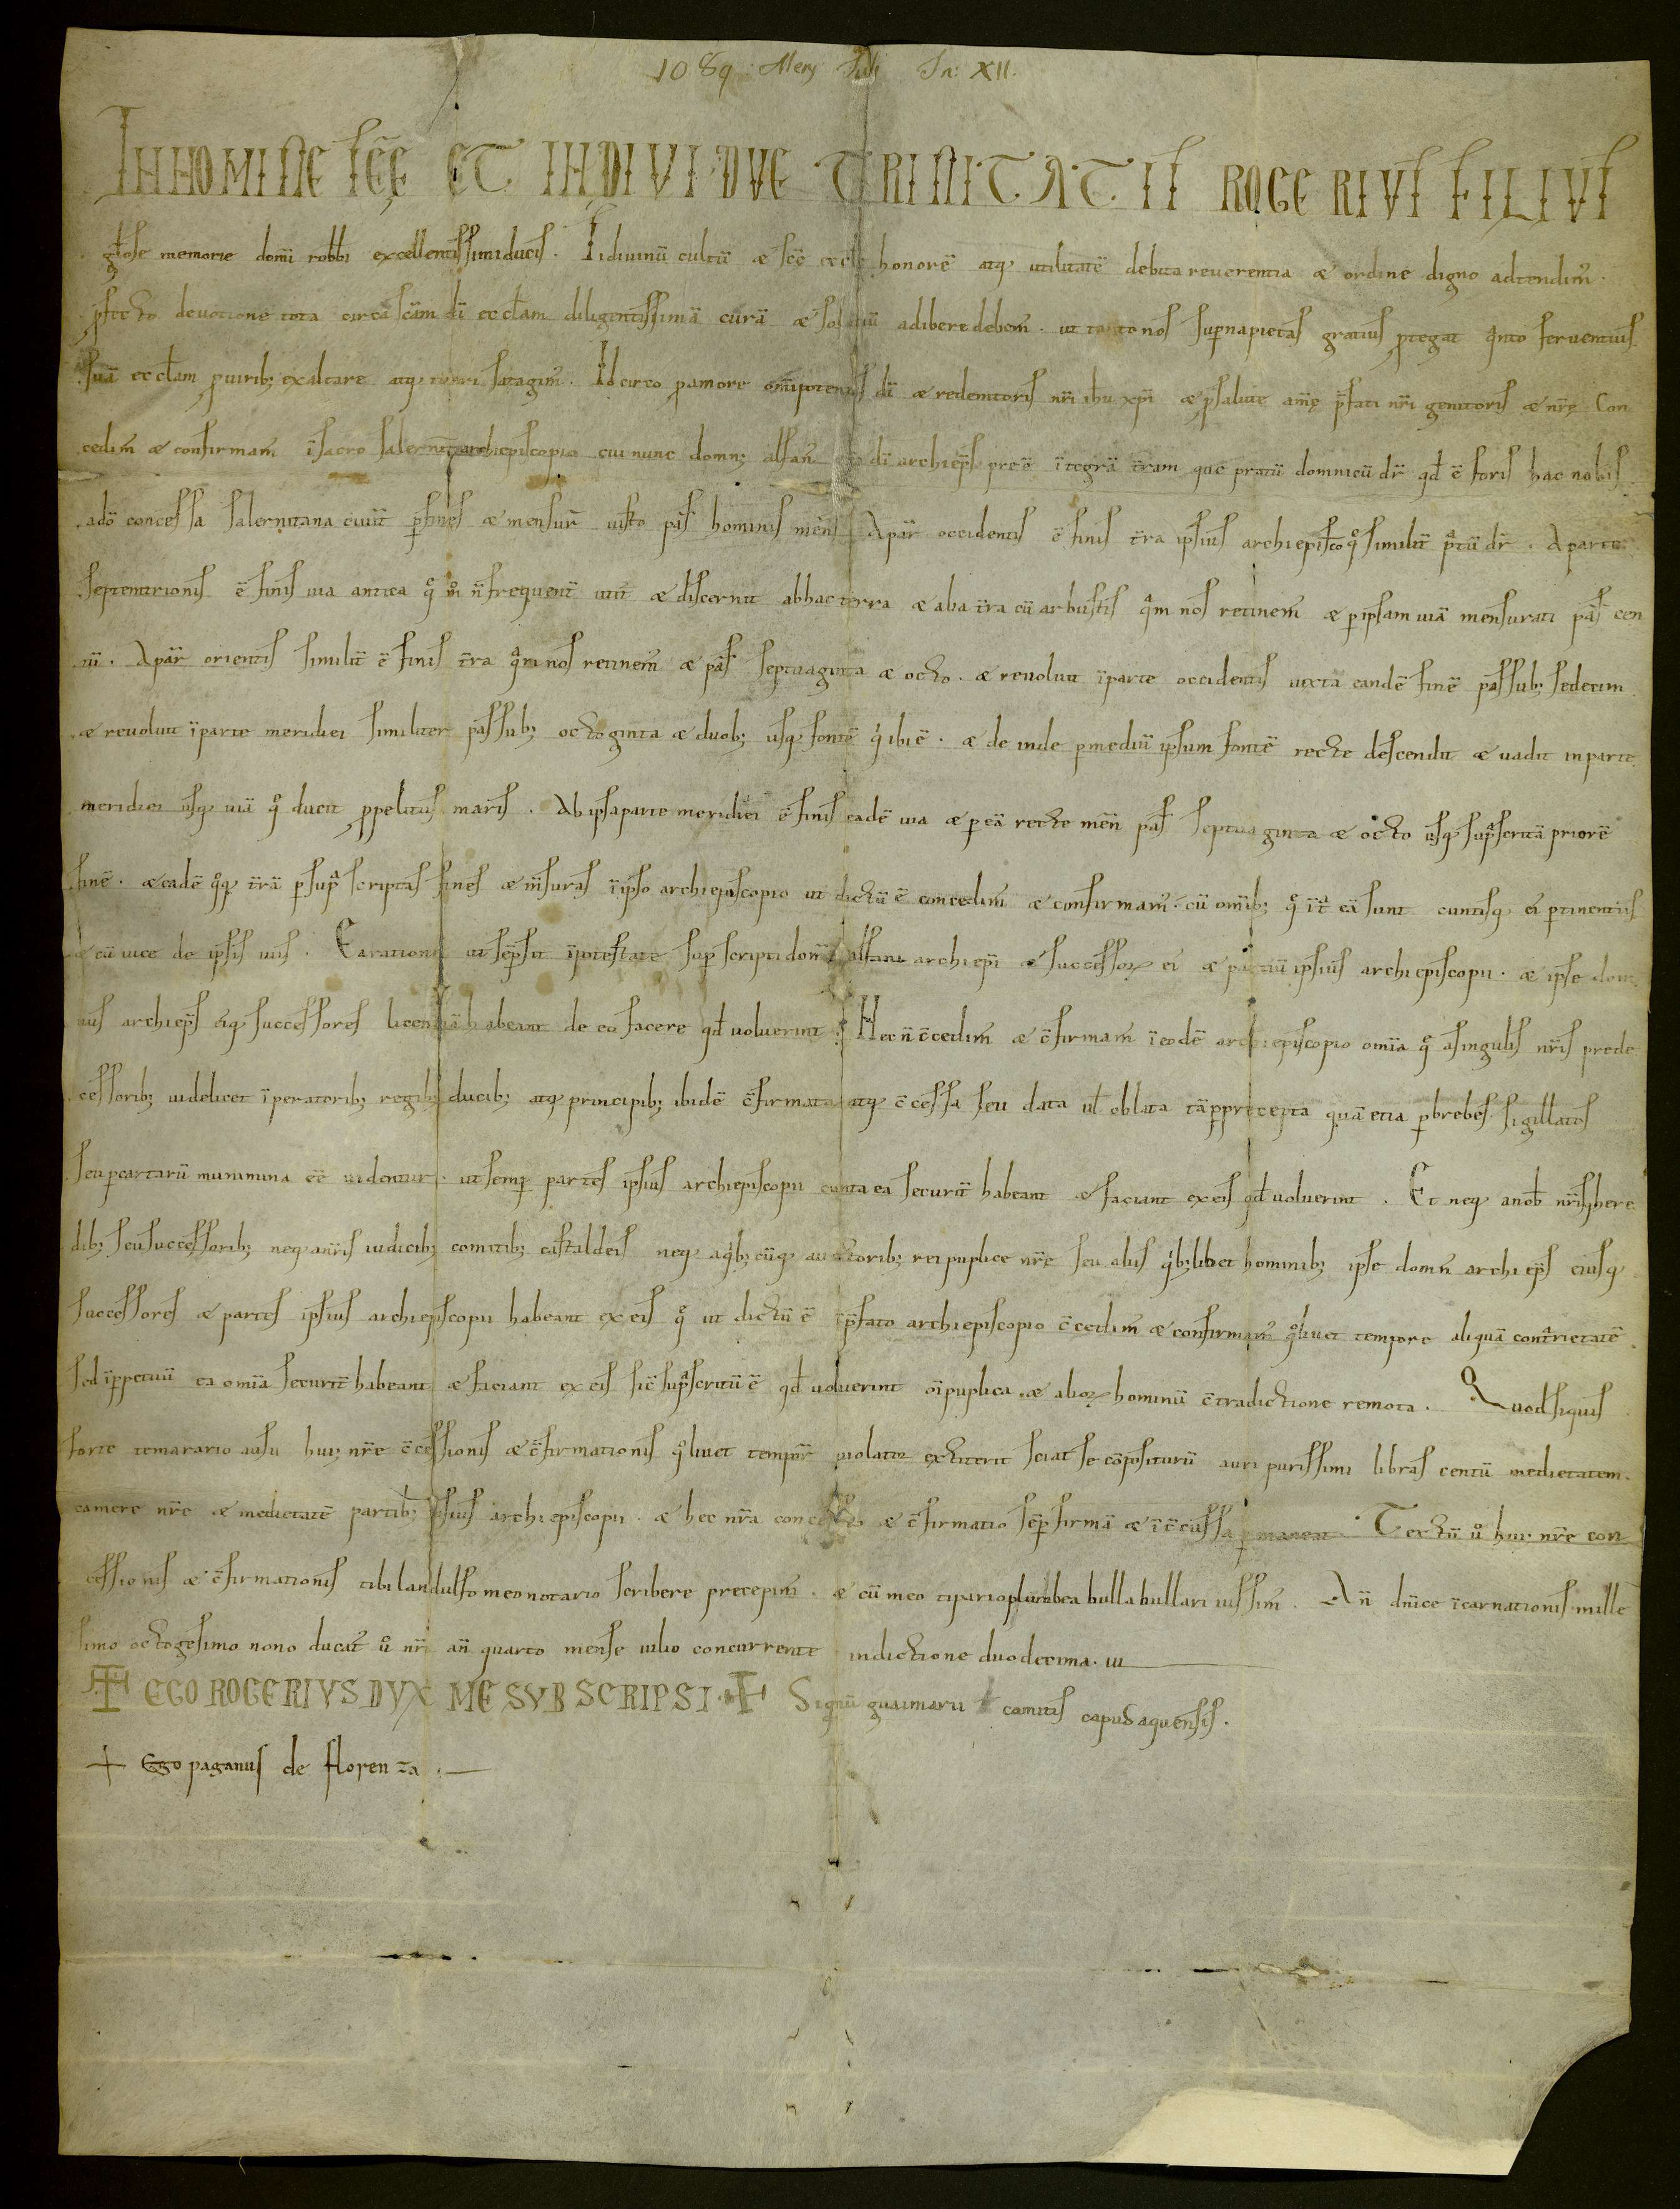 1089 Mens Juli In: XII.
IN NOMINE SCE ET INDIVIDUE TRINITATIS ROGERIUS FILIUS
głose memorie domi robbi excellentissimi ducis. Si divinū cultū æ scē honorē atq; utilitatē debita reverentia æ ordine digno adtendim̄.
devotione tota circa scām dī ecclam diligentissimā curā æ adibere debem̄. ut tanto nos supna pietas gratius ptegat q̄nto ferventius
suā ecclam p virib; exaltare atq; satagim̄. Idcirco p amore omīpotentis dī æ redemtoris nr̄i ihu xpī æ p salute anīe p̄fati nr̄i genitoris æ nr̄e. Con
cedim̄ æ confirmam̄ ī sacro archiepiscopio cui nunc domn; alfan̄ dī archieps̄ preē ītegrā tr̄am que pratū domnicū dr̄ qd̄ ē foris hac nobis
a dō concessa salernitana civit̄ p fines æ mensur̄ iusto pas̄ hominis mens̄ A par̄ occidentis ē finis tr̄a ipsius archiepiscō similit̄ p̄tū dr̄. A parte
septentrionis ē finis via antica q̊ m̊ n̄ frequent̄ æ discernit ab hac terra æ ab a tr̄a cū arbustis q̄m nos retinem̄ æ p ipsam viā mensurati pas̄ cen
tū. A par̄ orientis similit̄ ē finis tr̄a q̄m nos retinem̄ æ pas̄ septuaginta æ octo. æ revolvit ī parte occidentis iuxta eandē finē passub; sedecim
æ revolvit ī parte meridiei similiter passub; octoginta æ duob; usq; fontē q̊ ibi ē. æ de inde p mediū ipsum fontē recte descendit æ vadit in parte
meridiei usq; viā q̊ ducit p pelitus maris. Ab ipsa parte meridiei ē finis eadē via æ p eā recte men̄ pas̄ septuaginta æ octo usq; sup̄scritā priorē
finē. æ eadē q̊q; tr̄ā p sup̄ scriptas fines æ m̄suras ī ipso archiepiscopio ut dictū ē concedim̄ æ confirmam̄. cū omīb; q̊ īt̄ eā sunt cuntisq; ei ptinentiis
æ cū vice de ipsis viis. Ea ratione ut sēp sit ī potestate sup̄ scripti domī alfani archiepī æ successor ei æ partiū ipsius archiepiscopii. æ ipse dom
nus archieps̄ eiq; successores licentiā habeant de eo facere qd̄ voluerint. Nec n̄ c̄cedim̄ æ c̄firmam̄ ī eodē archiepiscopio omīa q̊ a singulis nr̄is prede
cessorib; videlicet īperatorib; regib; ducib; atq; principib; ibidē c̄firmata atq; c̄cessa seu data ul̄ oblata tā p precepta quā etia p brebes sigillatos
seu p cartarū munimina eē videntur. ut semp partes ipsius archiepiscopii cunta ea securit̄ habeant æ faciant ex eis qd̄ voluerint. Et neq; a nob̄ nr̄isq; here
dib; seu successorib; neq; a nr̄is iudicib; comitib; castaldeis neq; a q̊b; cūq; auctorib; rei puplice nr̄e seu aliis q̊b; libet hominib; ipse domn̄ archieps̄ eiusq;
successores æ partes ipsius archiepiscopii habeant ex eis q̊ ut dictū ē ī p̄fato archiepiscopio c̄cedim̄ æ confirmam̄ q̊livet tempore aliquā contrietatē.
sed ī ppetuū ea omīa securit̄ habeant æ faciant ex eis sic̄ sup̄scritū ē qd̄ voluerint oī puplica æ alior hominū c̄tradictione remota. Quod siquis
forte temarario ausu hui; nr̄e c̄cessionis æ c̄firmationis q̊livet tempor̄ violator extiterit sciat se cōpositurū auri purissimi libras centū medietatem
camere nr̄e æ medietatē partib; ipsius archiepiscopii. æ hec nr̄a concessio æ c̄firmatio sēp firmā æ īc̄cussa pmaneat. Textū ů hui; nr̄e con
cessionis æ c̄firmationis tibi landulfo meo notario scribere precepim̄. æ cū meo tipario plumbea bulla bullari iussim̄. An̄ dn̄ice īcarnationis mille
simo octogesimo nono ducat̄ ů nr̄i an̄ quarto mense iulio concurrente indictione duodecima.
EGO ROGERIUS DUX ME SUBSCRIPSI. Signū guaimarii comitis capudaquensis.
Ego paganus de florenza.